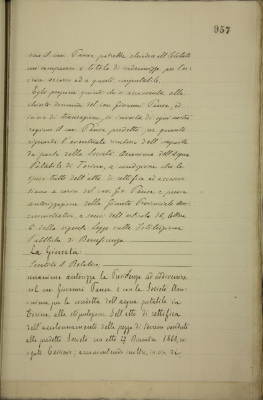 957
con il cav. Panza potrebbe chiedere all'Istituto
un compenso a titolo di indennizzo per l'er-
rore occorso ed a questi imputabile.
Egli propone quindi che si acconsenta alla
chiesta domanda del cav. Giovanni Panza, ed
in via di transazione, si invochi di ogni nostra
ragione il cav. Panza predetto per quanto
riguarda l'eventuale rimborso dell'importo
da parte della Società Anonima dell'Acqua
Potabile di Torino, a condizione che le
spese tutte dell'atto di rettifica ad eccezione
siano a carico del cav. Gio. Panza, e previa
autorizzazione della Giunta Provinciale Am-
ministrativa, a sensi dell'articolo 36, lettera
b della vigente legge sulle Istituzioni
Pubbliche di Beneficenza.
La Giunta:
Sentito il Relatore
unanime autorizza la Presidenza ad addivenire
col cav. Giovanni Panza e con la Società Ano-
nima per la condotta dell'acqua potabile in
Torino, alla stipulazione dell'atto di rettifica
dell'accantonamento della pezza di terreno venduta
alla predetta Società con atto 27 Dicembre 1881, ro-
gato Cassinis, acconsentendo inoltre, in via di